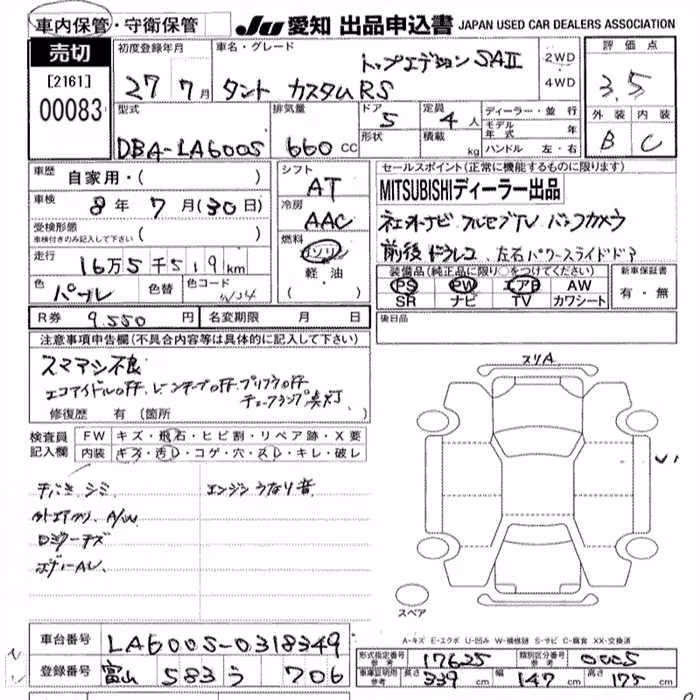 車内保管・守衛保管 JU 愛知 出品申込書 JAPAN USED CAR DEALERS ASSOCIATION
売切 初度登録年月 車名・グレード 評価点
[2161] 27 7月 タント カスタムRS トップエディション SAⅡ 2WD 4WD 3.5
00083 型式 排気量 ドア 定員 ディーラー・並行 外装 内装
DBA-LA600S 660 CC 5 4人 モデル年式 年 B C
形状 積載 kg ハンドル 左・右
車歴 自家用・( ) シフト AT セールスポイント(正常に機能するものに限ります)
車検 8年 7月(30日) 冷房 AAC MITSUBISHIディーラー出品
受検形態 車検付きのみ記入して下さい ( ) 燃料 ガソリン ナビ フルセグTV バックカメラ
走行 16万5千519km 軽・油 前後ドラレコ 左右パワースライドドア
色 パープル 色替 色コード ・( ) 装備品(純正品に限り○をつけてください) 新車保証書
PS PW エアB AW 有・無
SR ナビ TV カワシート
R券 9,550円 名変期限 月 日 後日品
注意事項申告欄(不具合内容等は具体的に記入して下さい)
スマアシ不良 スリA
エコアイドルOFF レーンキープOFF プリクラOFF
チェックランプ点灯
修復歴 有(箇所 )
検査員記入欄 FW キズ・飛石・ヒビ割・リペア跡・X要
内装 キズ・汚レ・コゲ・穴・スレ・キレ・破レ
シミ エンジンうなり音
A/W
ボディーAU
スペア
A-キズ E-エクボ U-凹み W-補修跡 S-サビ C-腐食 XX-交換済
車台番号 LA600S-0318349 形式指定番号 参考 17625 類別区分番号 参考 0005
登録番号 富山 583 う 706 車庫証明用 参考 長さ 339cm 幅 147cm 高さ 175cm